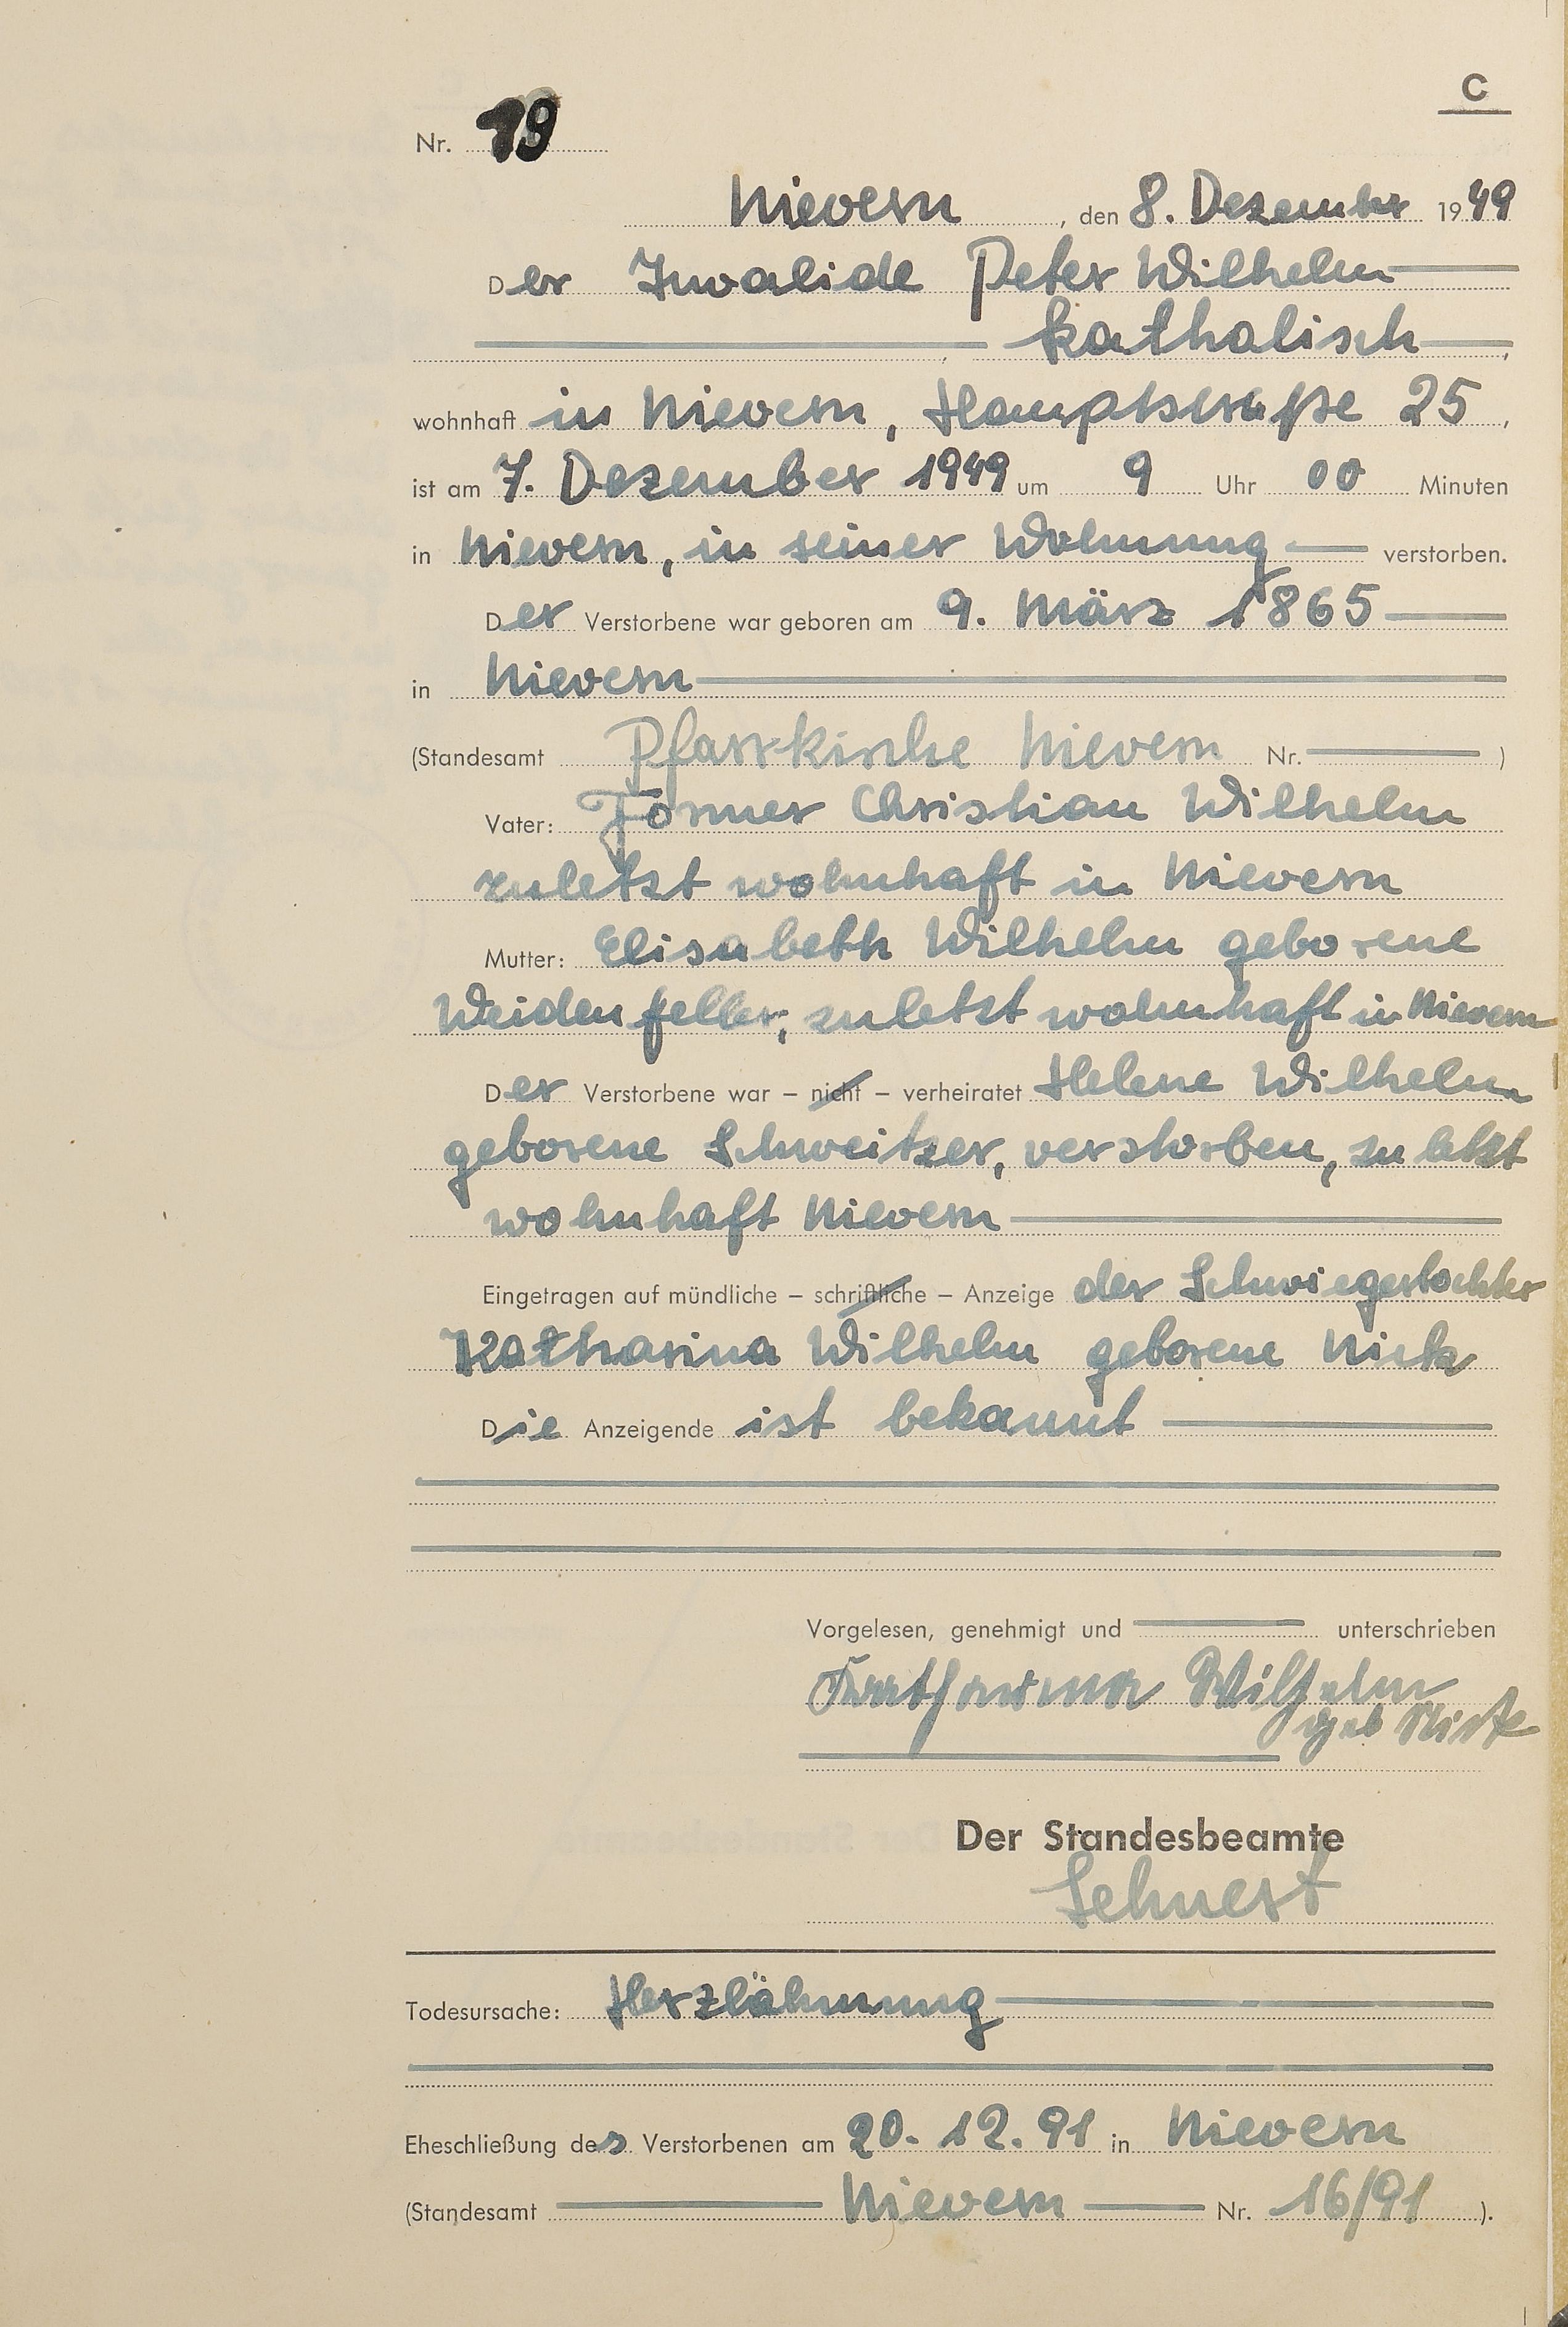 C
Nr. 19
Nievern, den 8. Dezember 1949
Der Invalide Peter Wilhelm
katholisch,
wohnhaft in Nievern, Hauptstraße 25,
ist am 7. Dezember 1949 um 9 Uhr 00 Minuten
in Nievern, in seiner Wohnung verstorben.
Der Verstorbene war geboren am 9. März 1865
in Nievern
(Standesamt Pfarrkirche Nievern Nr. )
Vater: Former Christian Wilhelm
zuletzt wohnhaft in Nievern
Mutter: Elisabeth Wilhelm geborene
Weidenfeller, zuletzt wohnhaft in Nievern
Der Verstorbene war – nicht – verheiratet Helene Wilhelm
geborene Schweitzer, verstorben, zuletzt
wohnhaft Nievern
Eingetragen auf mündliche – schriftliche – Anzeige der Schwiegertochter
Katharina Wilhelm geborene Nick
Die Anzeigende ist bekannt
Vorgelesen, genehmigt und unterschrieben
Katharina Wilhelm
geb Nick
Der Standesbeamte
Lehnert
Todesursache: Herzlähmung
Eheschließung des Verstorbenen am 20.12.91 in Nievern
(Standesamt Nievern Nr. 16/91 ).